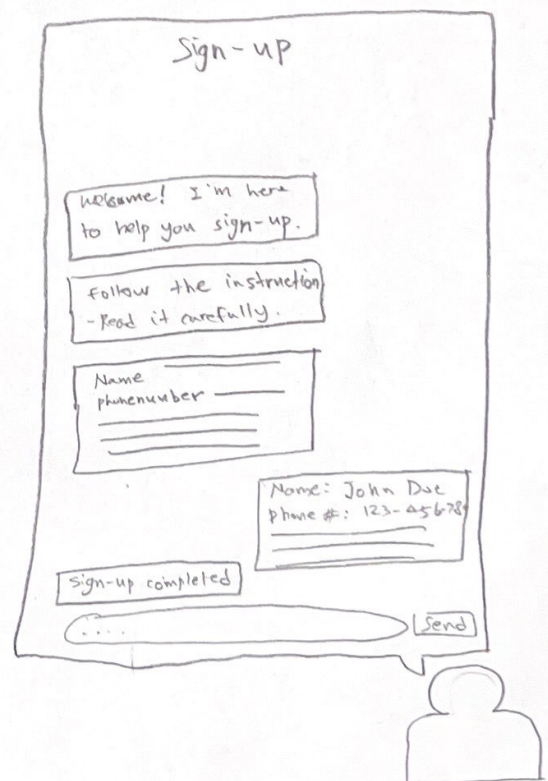 Sign-up
Welcome! I'm here
to help you sign-up.
Follow the instruction
- Read it carefully.
Name
phonenumber
Name: John Doe
phone #: 123-45678
sign-up completed
....
Send